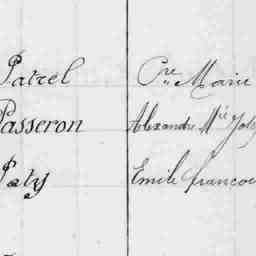 Patrel Pre Marie
Passeron Alexandre Mie Joly
Paty Emile francoi